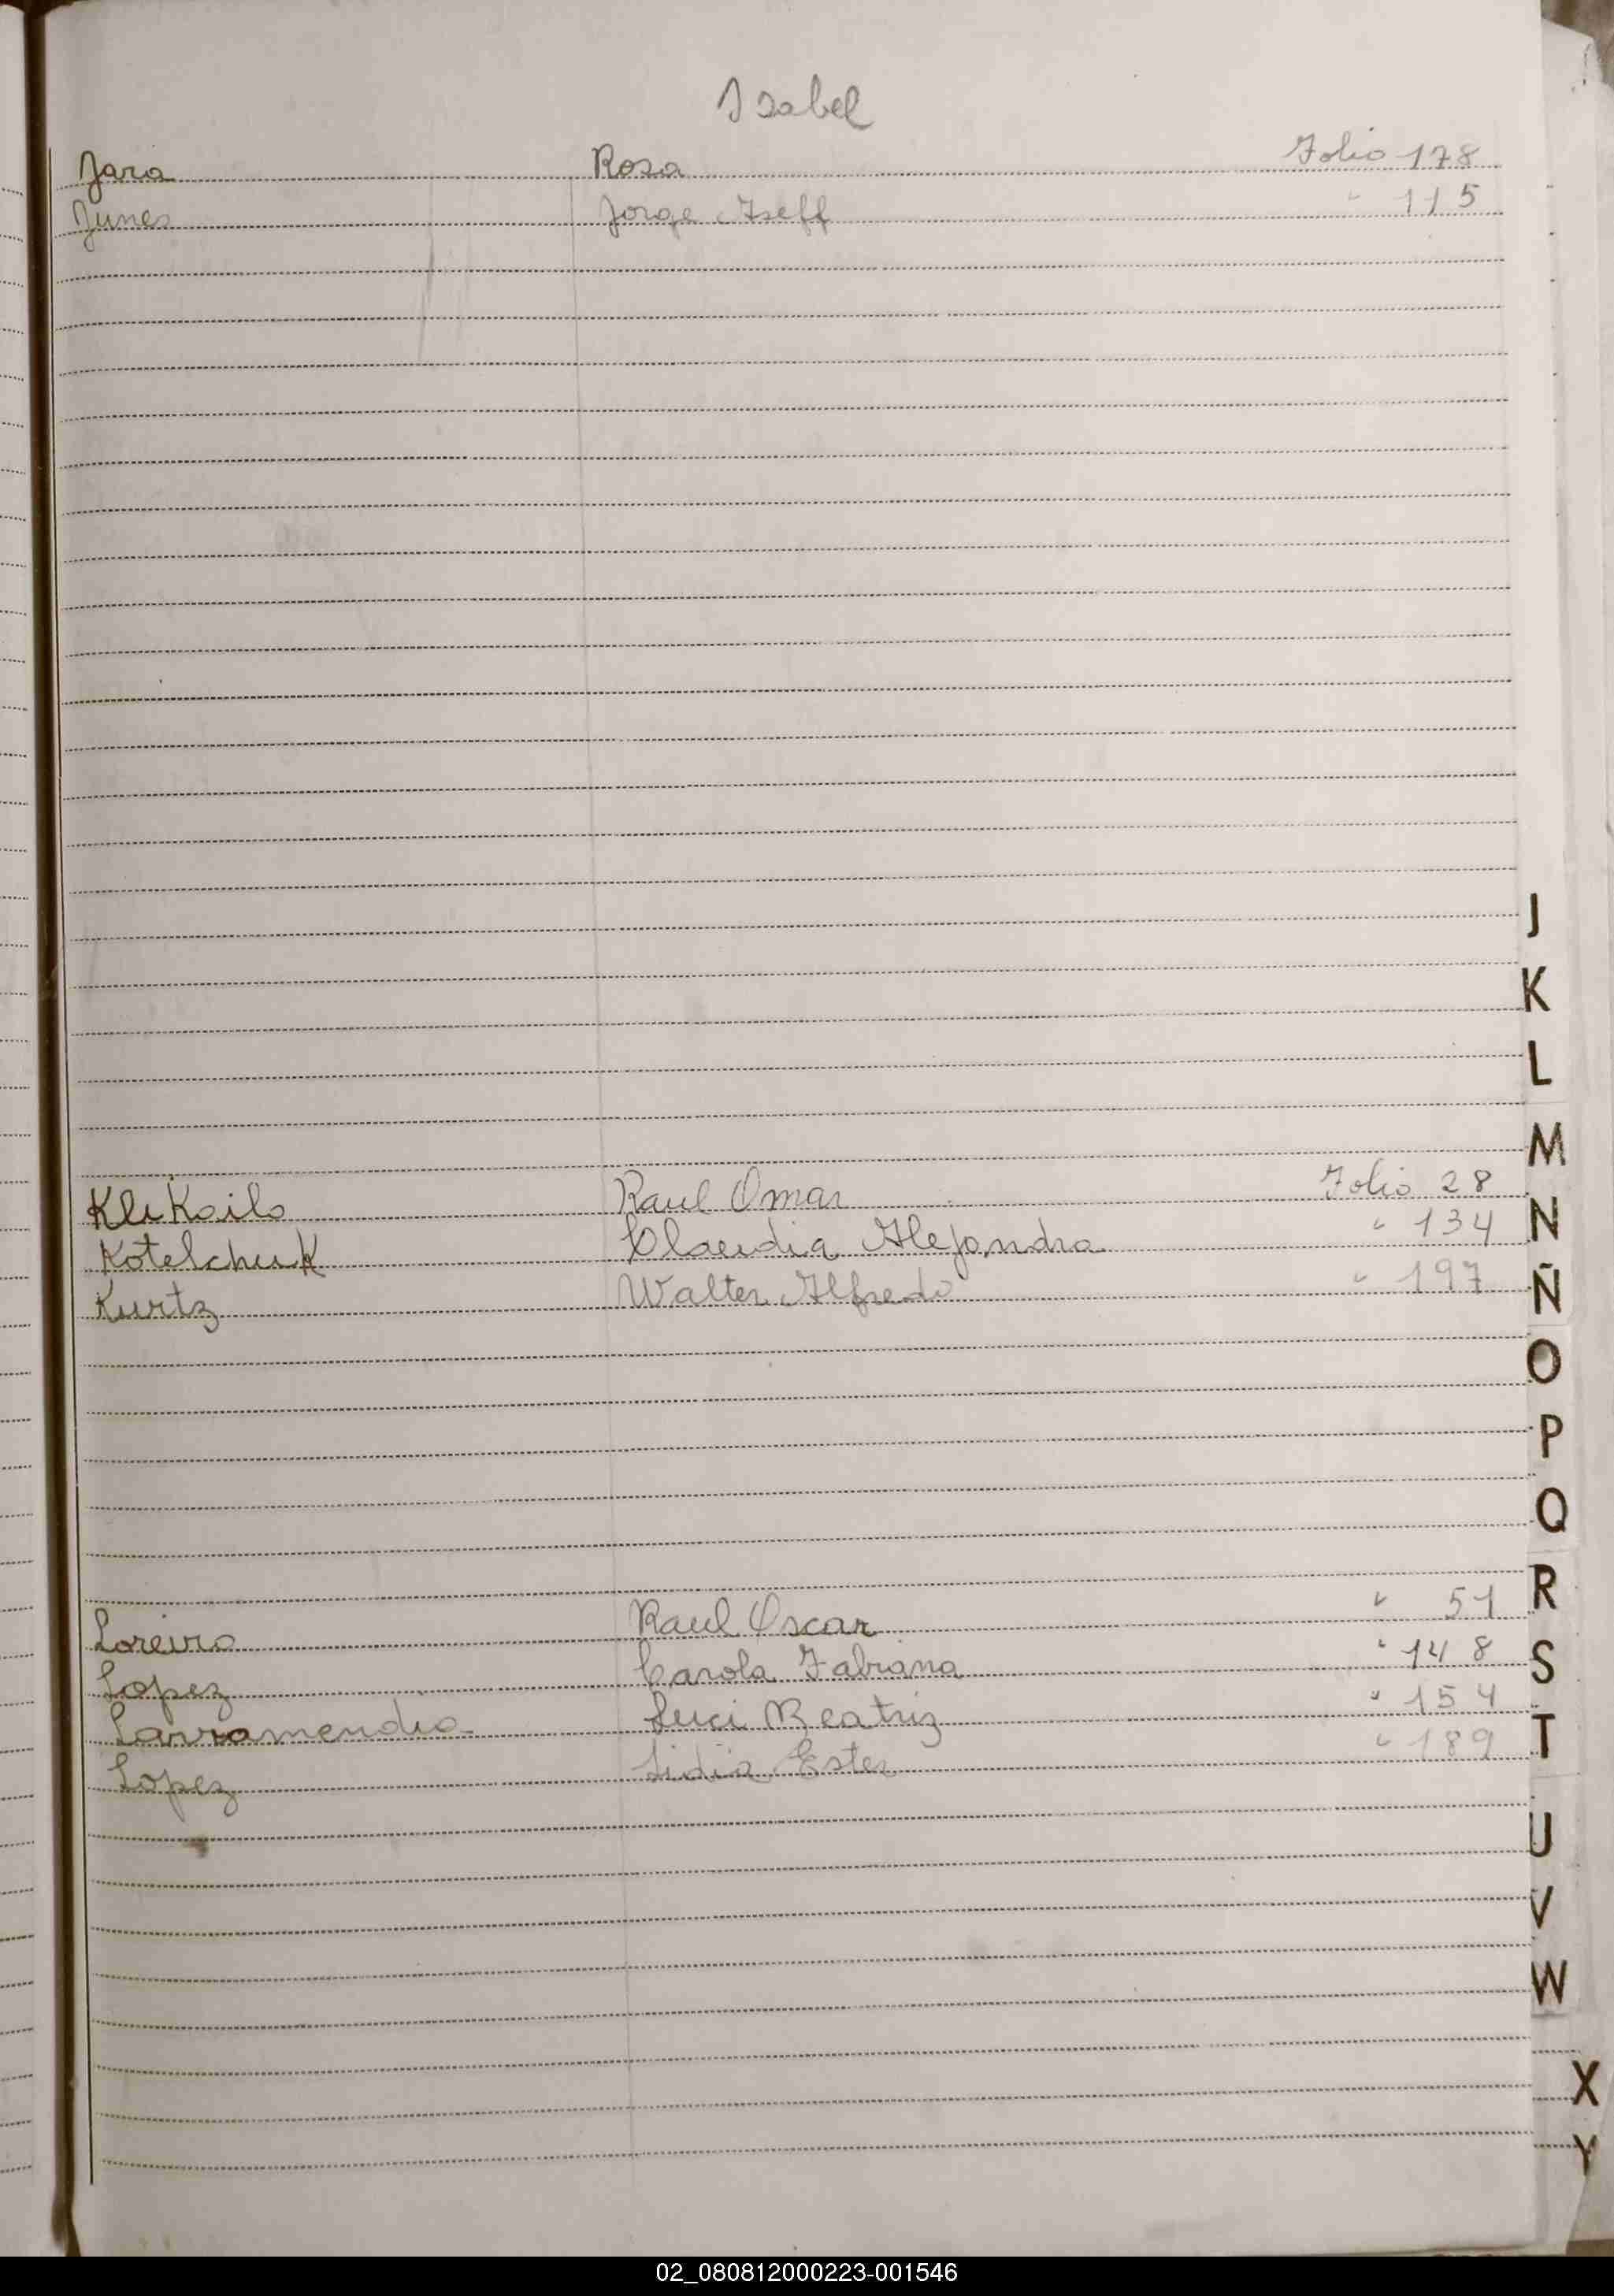 Isabel
Jara Rosa Folio 178
Junes Jorge Iseff " 115
J
K
L
M
KliKailo Raul Omar Folio 28
N
Kotelchuk Claudia Alejandra " 134
Kurtz Walter Alfredo " 197
Ñ
O
P
Q
R
Loreiro Raul Oscar " 51
Lopez Carola Fabiana " 148
S
Larramendia Luci Beatriz " 154
T
Lopez Lidia Ester " 189
U
V
W
X
Y
02_080812000223-001546